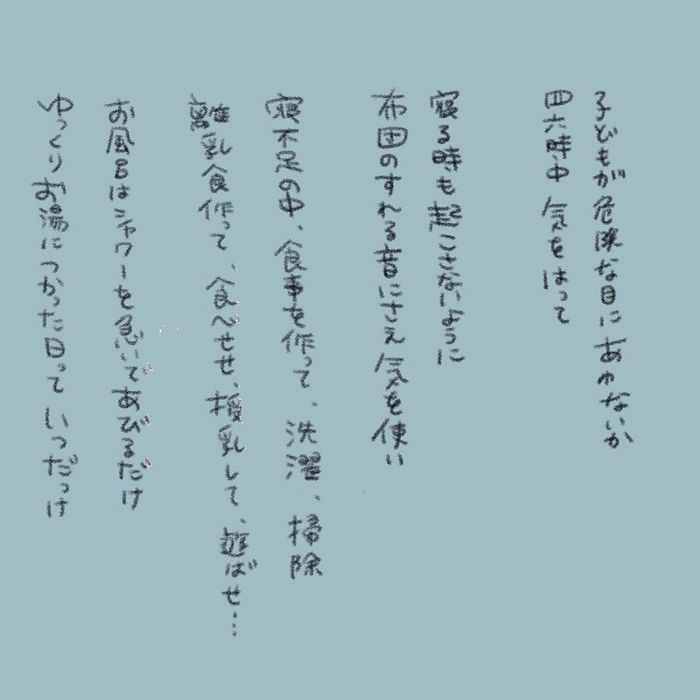 子どもが危険な目にあわないか
四六時中 気をはって
寝る時も起こさないように
布団のすれる音にさえ気を使い
寝不足の中、食事を作って、洗濯、掃除
離乳食作って、食べせせ、授乳して、遊ばせ…
お風呂はシャワーを急いであびるだけ
ゆっくりお湯につかった日っていつだっけ